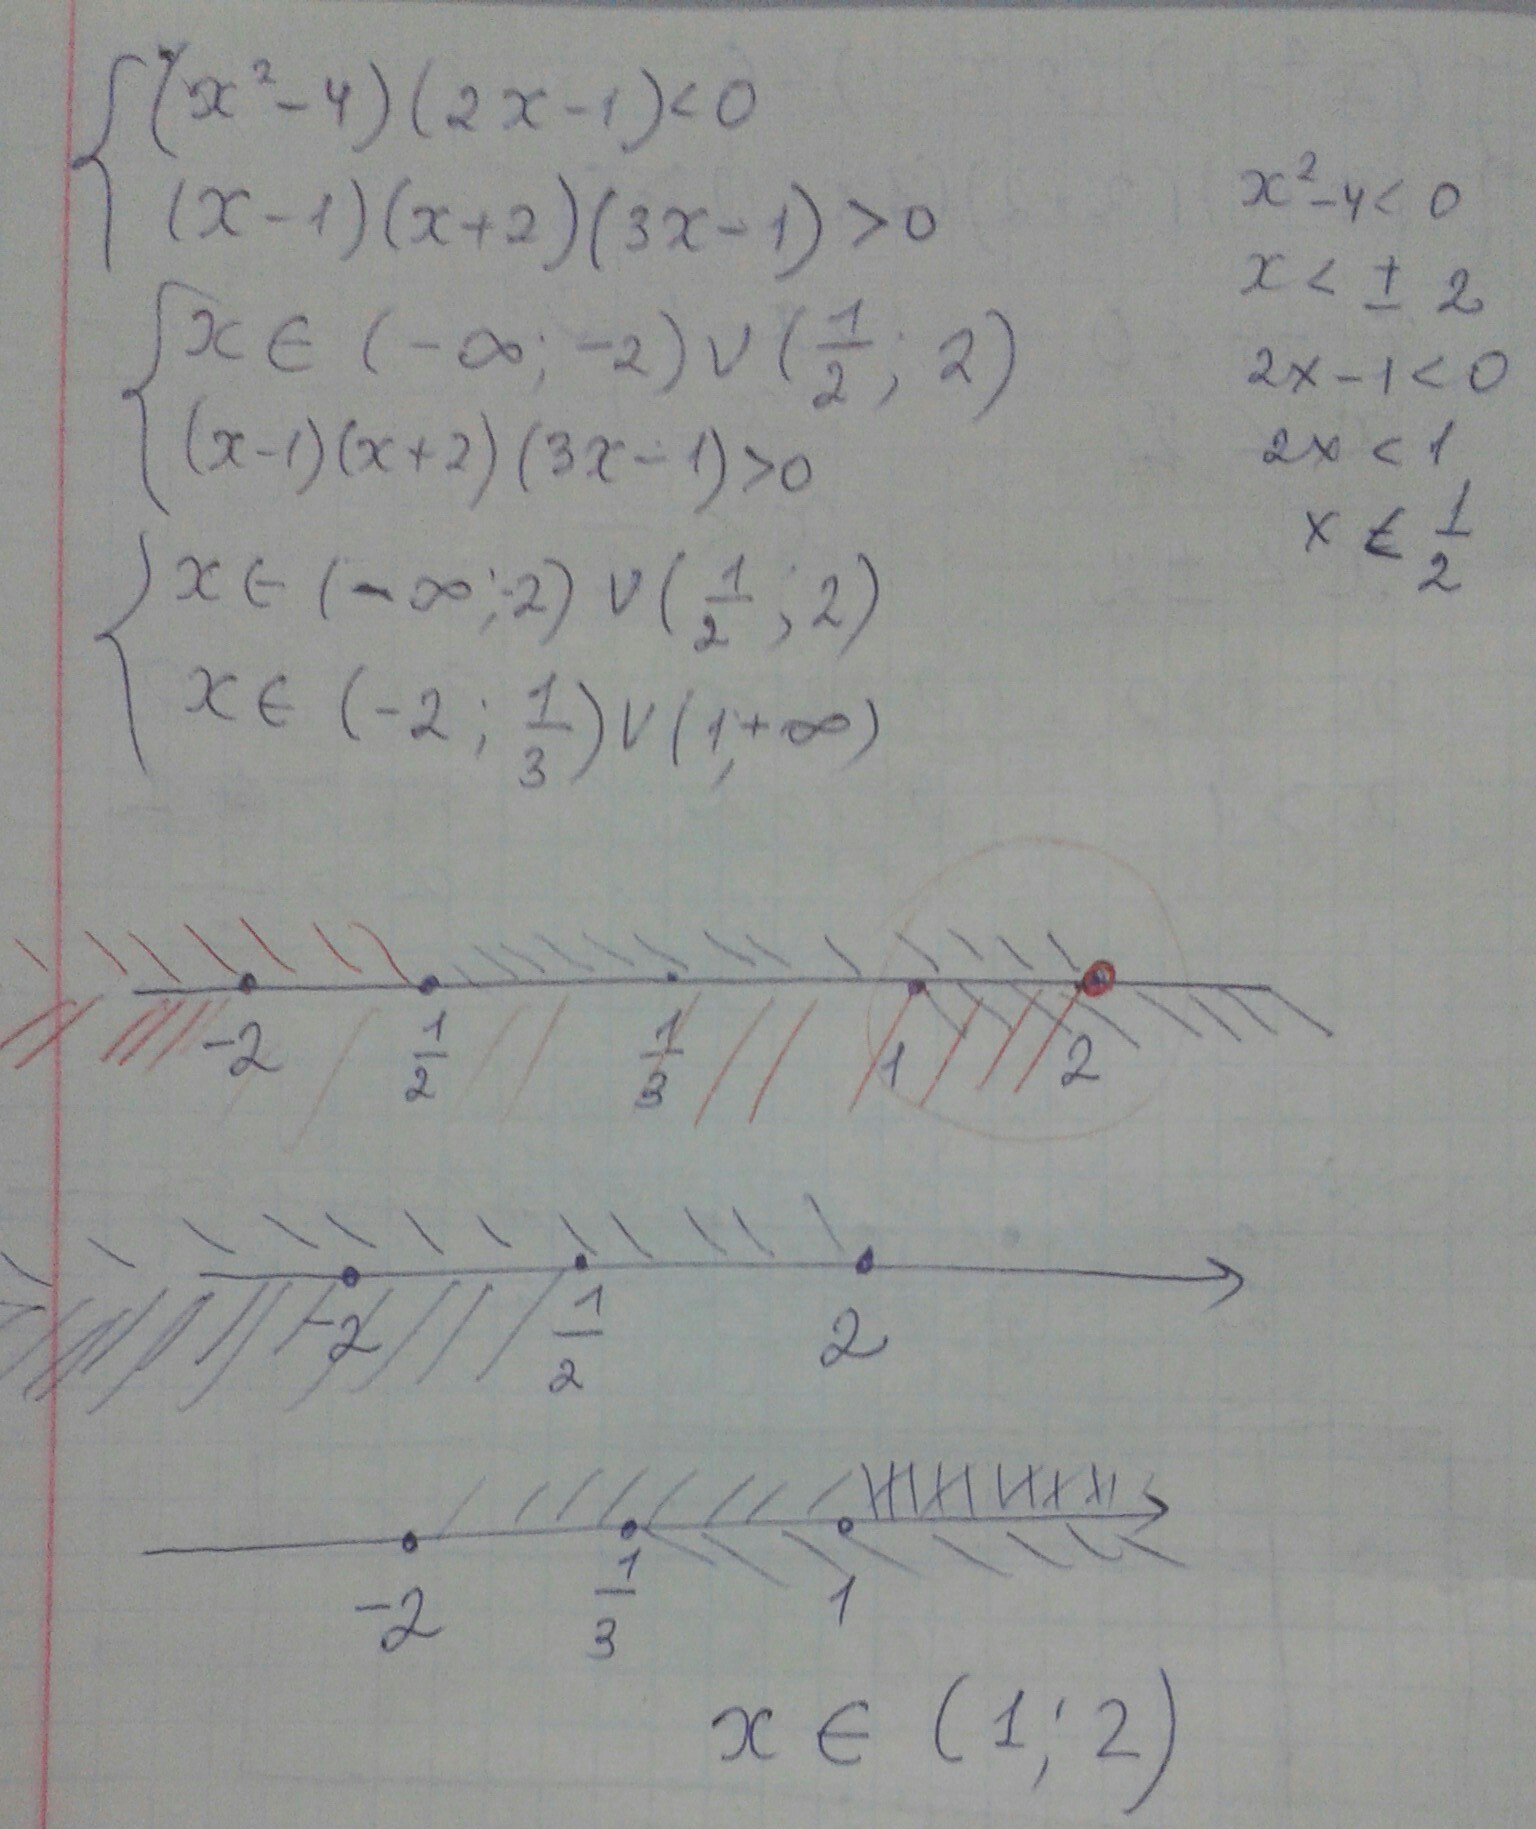 (x²-4)(2x-1)<0
(x-1)(x+2)(3x-1)>0
x∈(-∞;-2)∨(1/2;2)
(x-1)(x+2)(3x-1)>0
x∈(-∞;-2)∨(1/2;2)
x∈(-2;1/3)∨(1;+∞)
x²-4<0
x<±2
2x-1<0
2x<1
x<1/2
-2 1/2 1/3 1 2
-2 1/2 2
-2 1/3 1
x∈(1;2)